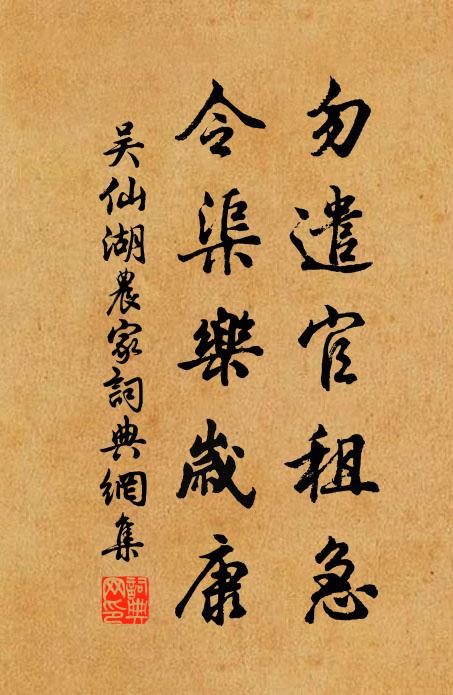 勿遣官租急
令渠樂歲康
吳仙湖農家詞典網集
詞典網印